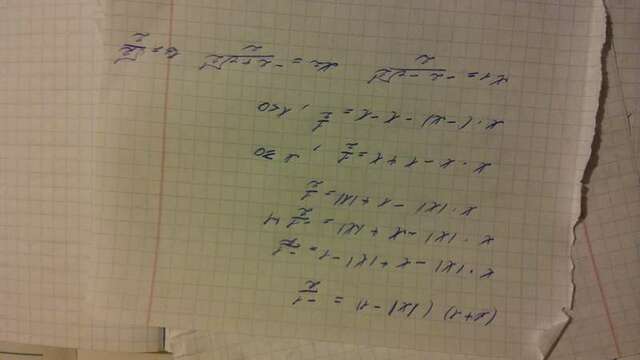 (x+1) (|x| - 1) = -1/2
x · |x| - x + |x| - 1 = -1/2
x · |x| - x + |x| = -1/2 + 1
x · |x| - x + |x| = 1/2
x · x - x + x = 1/2 , x ≥ 0
x · (-x) - x - x = 1/2 , x < 0
x1 = -2-√2/2 x2 = -2+√2/2 x3 = √2/2